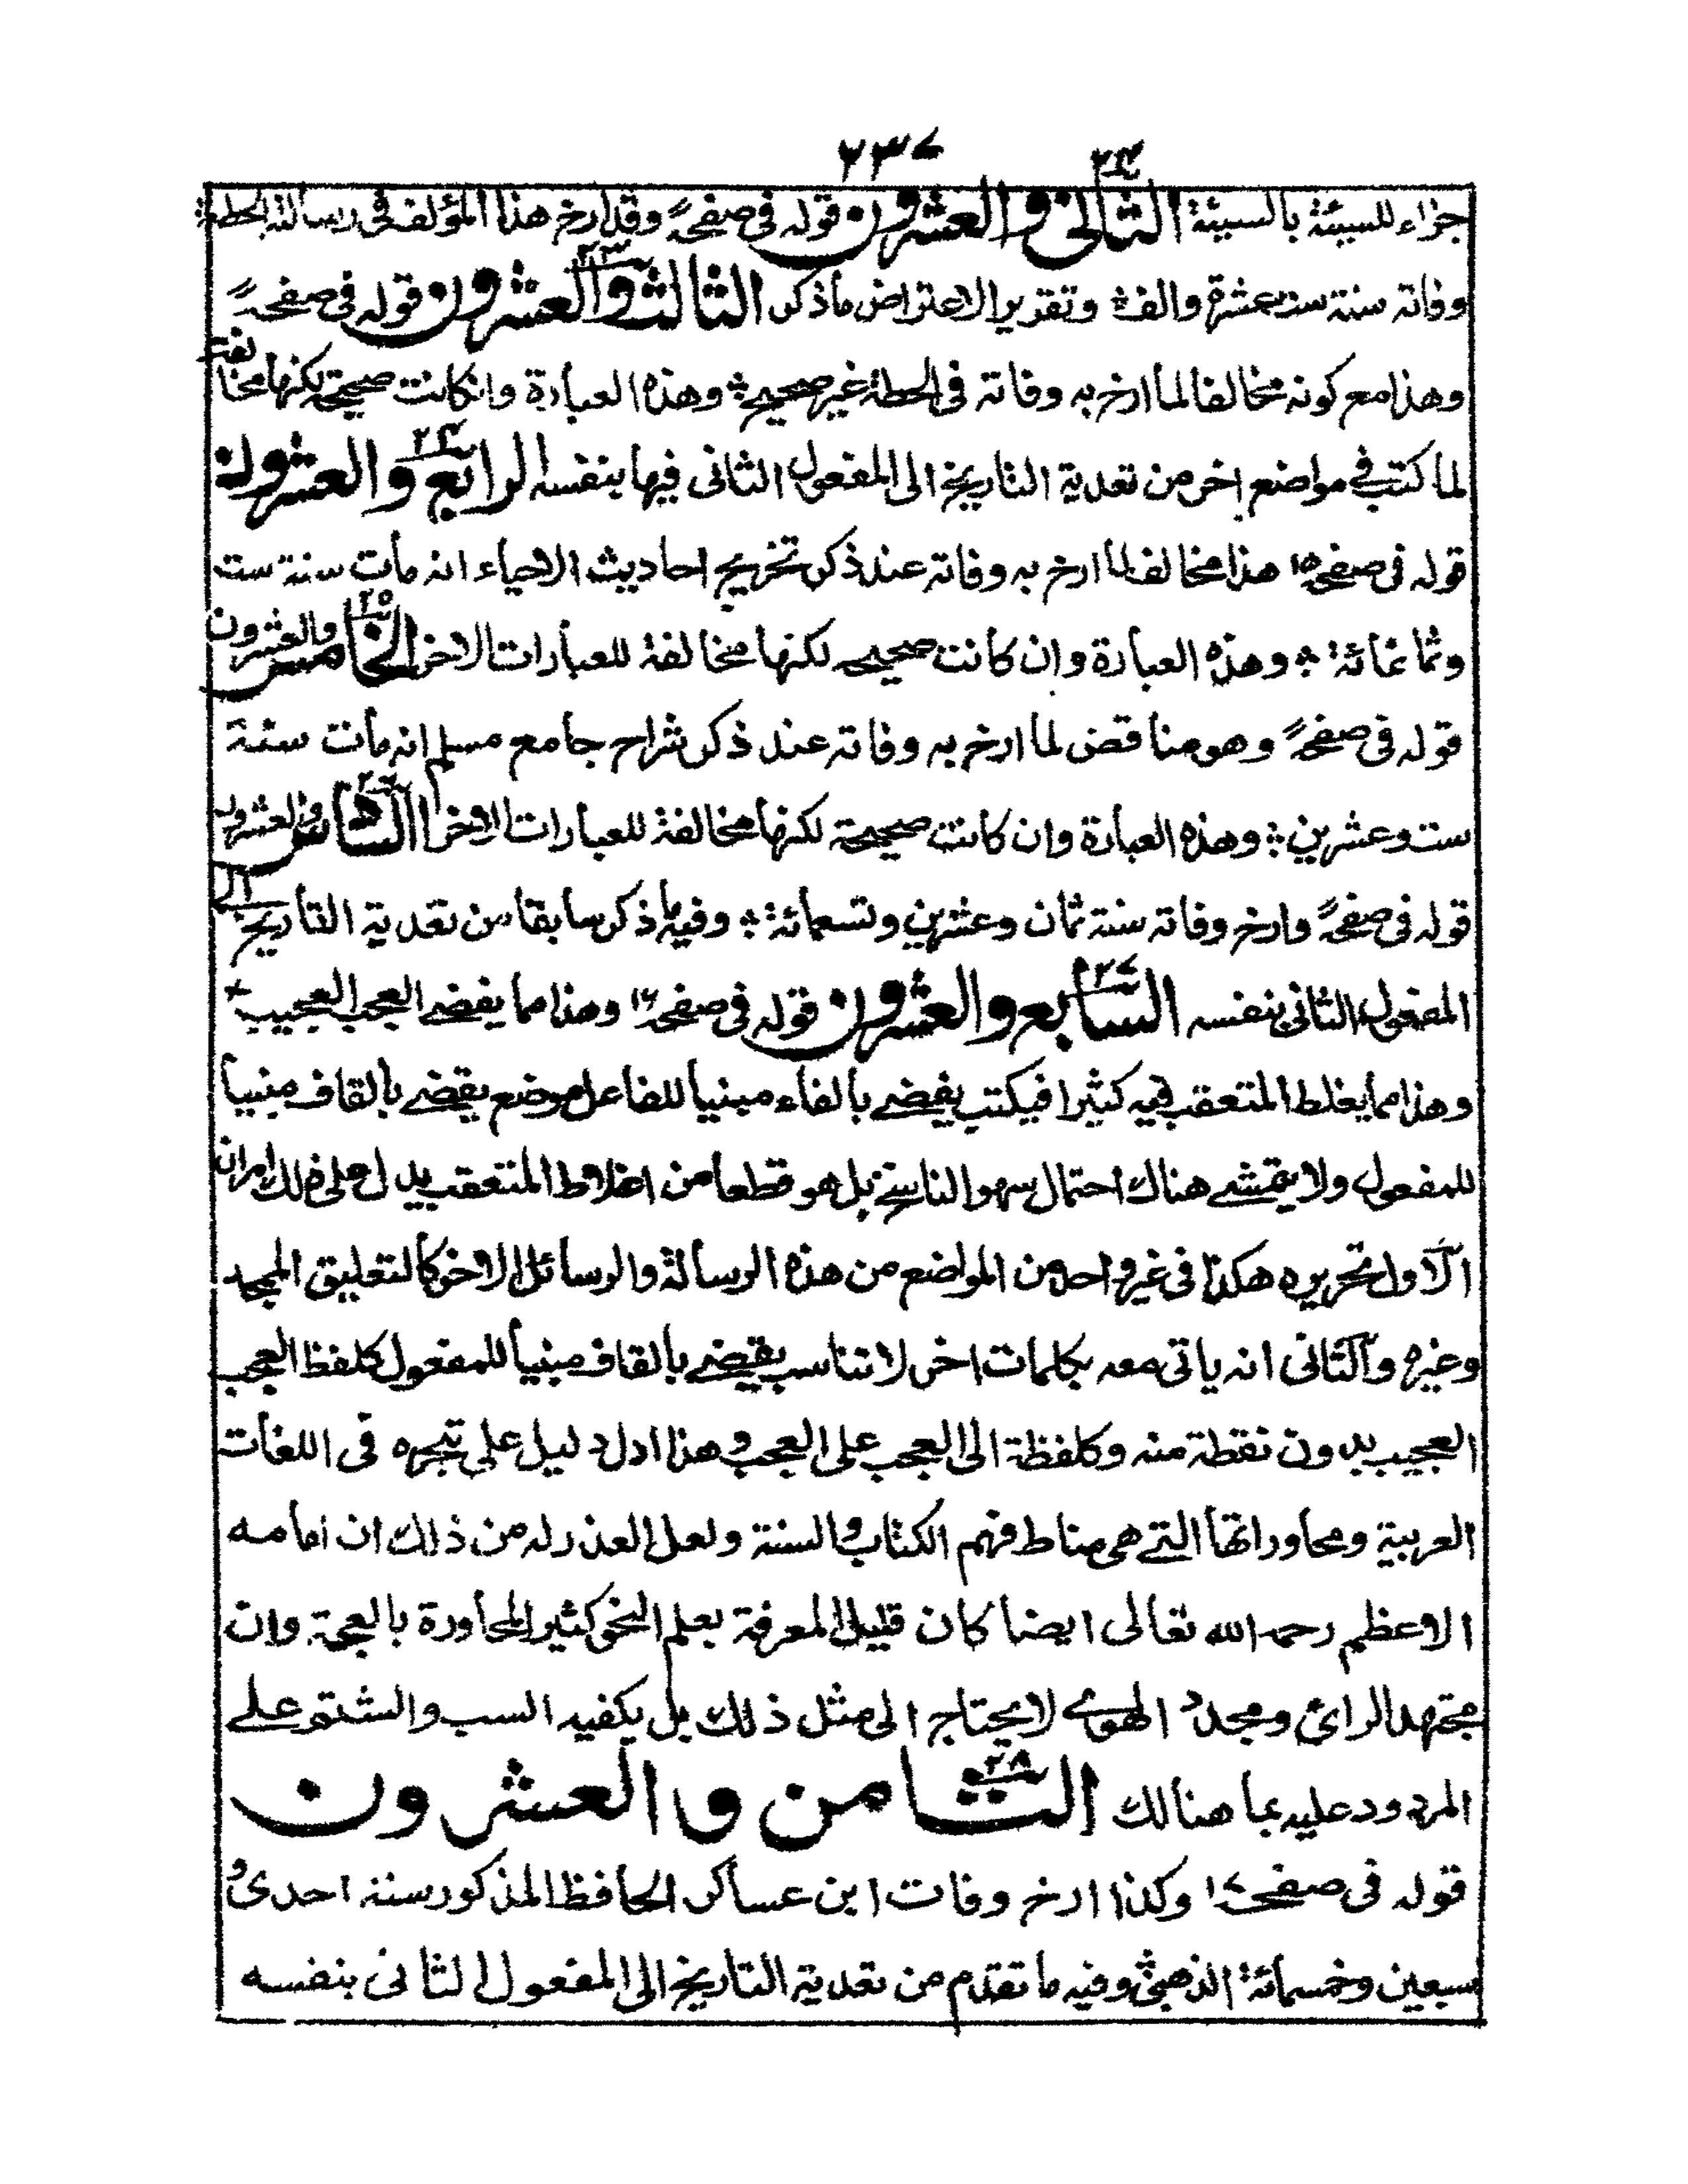 ٢٣٧
جزاء للسيئة بالسيئة الثانى والعشرون قوله فى صفحة وقد ارخ هذا المؤلف فى رسالته الحطة
وفاته سنة ست عشرة والف وتقرير الاعتراض ما ذكر الثالث والعشرون قوله فى صفحة
وهذا مع كونه مخالفا لما ارخ به وفاته فى الحطة غير صحيح وهذه العبارة وانكانت صحيحة لكنها مخالفة
لما كتب فى مواضع اخر من تعدية التاريخ الى المفعول الثانى فيها بنفسه الرابع والعشرون
قوله فى صفحة ١٥ هذا مخالف لما ارخ به وفاته عند ذكر تخريج احاديث الاحياء انه مات سنة ست
وثما نمائة وهذه العبارة وان كانت صحيحه لكنها مخالفة للعبارات الاخر الخامس والعشرون
قوله فى صفحة وهو مناقض لما ارخ به وفاته عند ذكر شراح جامع مسلم انه مات سنة
ست وعشرين وهذه العبارة وان كانت صحيحة لكنها مخالفة للعبارات الاخر السادس والعشرون
قوله فى صفحة وارخ وفاته سنة ثمان وعشرين وتسعمائة وفيه ما ذكر سابقا من تعدية التاريخ الى
المفعول الثانى بنفسه السابع والعشرون قوله فى صفحة ١٦ وهذا مما يفضے العجب العجيب
وهذا مما يغلط المتعقب فيه كثيرا فيكتب يفضے بالفاء مبنيا للفاعل موضع يقضے بالقاف مبنيا
للمفعول ولا يتمشے هناك احتمال سهو الناسخ بل هو قطعا من اغلاط المتعقب يدل على ذلك امران
الاول تحريره هكذا فى غير واحد من المواضع من هذه الرسالة والرسائل الاخر كالتعليق الممجد
وغيره والثانى انه ياتى معه بكلمات اخر لا تناسب يقضے بالقاف مبنيا للمفعول كلفظ العجب
العجيب بدون نقطة منه وكلفظة الى العجب على العجب وهذا ادل دليل على تبحره فى اللغات
العربية ومحاوراتها التے هى مناط فهم الكتاب والسنة ولعل العذر له من ذلك ان امامه
الاعظم رحمه الله تعالى ايضا كان قليل المعرفة بعلم النحو كثير المحاورة بالعجمة وان
مجتهد الرائ ومجدد الهوے لا يحتاج الى مثل ذلك بل يكفيه السب والشتم علے
المردود عليه بما هنالك الثامن والعشرون
قوله فى صفحة ١٧ وكذا ارخ وفات ابن عساكر الحافظ المذكور سنة احدى و
سبعين وخمسمائة الذهبى وفيه ما تقدم من تعدية التاريخ الى المفعول الثانى بنفسه